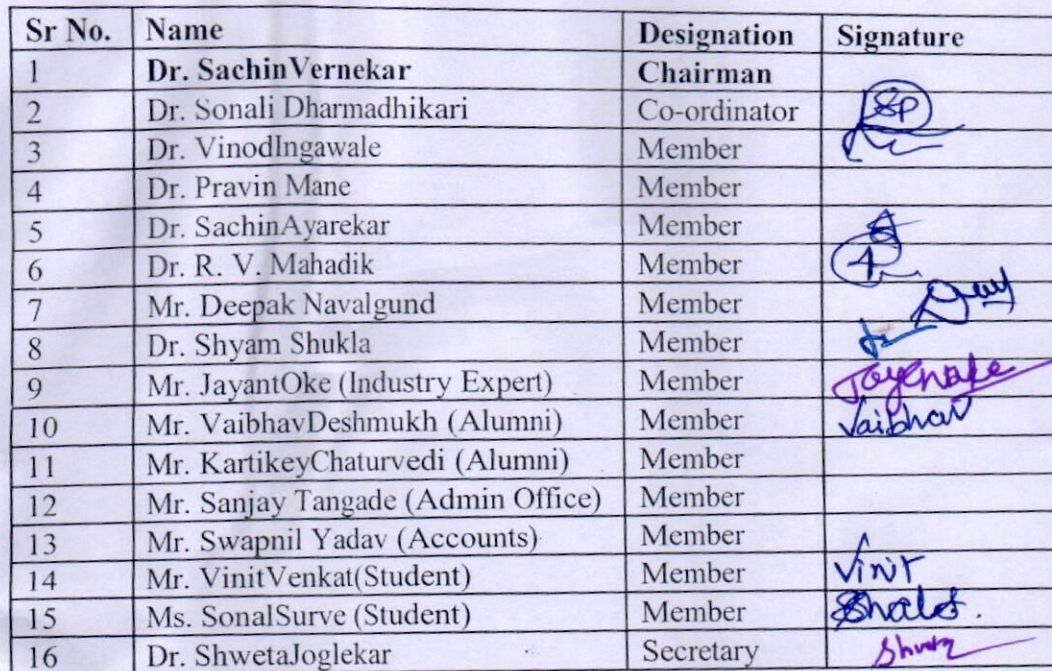 Sr No. Name Designation Signature
1 Dr. SachinVernekar Chairman
2 Dr. Sonali Dharmadhikari Co-ordinator
3 Dr. VinodIngawale Member
4 Dr. Pravin Mane Member
5 Dr. SachinAyarekar Member
6 Dr. R. V. Mahadik Member
7 Mr. Deepak Navalgund Member
8 Dr. Shyam Shukla Member
9 Mr. JayantOke (Industry Expert) Member
10 Mr. VaibhavDeshmukh (Alumni) Member Vaibhav
11 Mr. KartikeyChaturvedi (Alumni) Member
12 Mr. Sanjay Tangade (Admin Office) Member
13 Mr. Swapnil Yadav (Accounts) Member
14 Mr. VinitVenkat(Student) Member Vinit
15 Ms. SonalSurve (Student) Member
16 Dr. ShwetaJoglekar Secretary